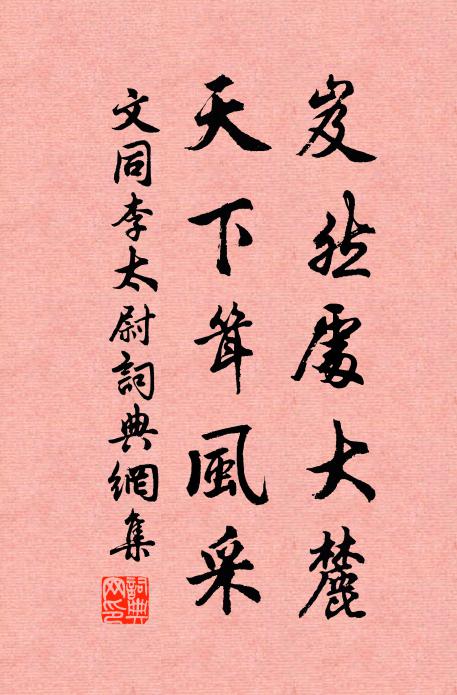 岌然處大麓
天下聳風采
文同李太尉詞典網集
詞典網印